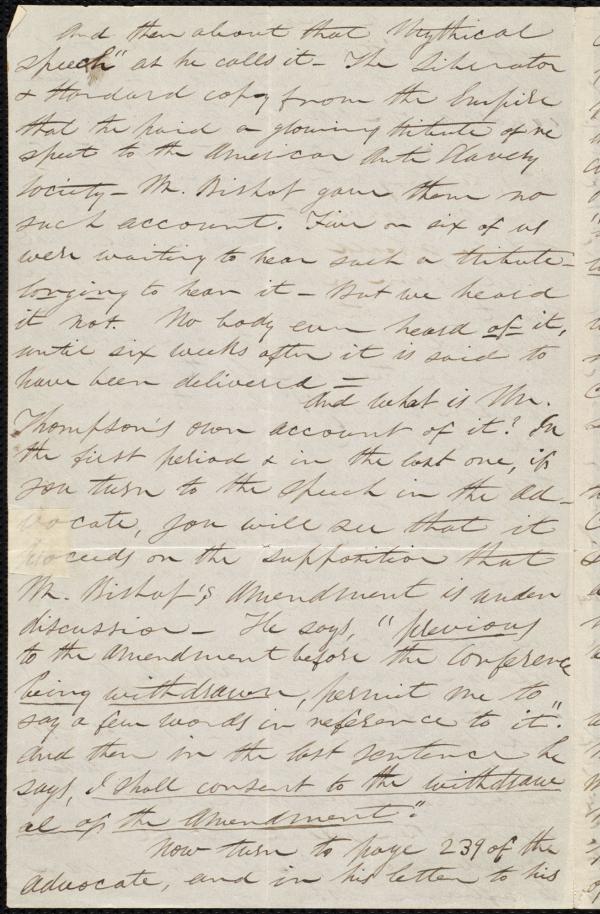 And then about that "Mythical
speech" as he calls it - The Liberator
& Standard copy from the Empire
that he paid a glowing tribute of re
spect to the American Anti Slavery
Society - Mr. Bishop gave them no
such account. Five or six of us
were waiting to hear such a tribute -
longing to hear it - But we heard
it not. No body ever heard of it,
until six weeks after it is said to
have been delivered =
And what is Mr.
Thompson's own account of it? In
the first period & in the last one, if
you turn to the speech in the Ad-
vocate, you will see that it
proceeds on the supposition that
Mr. Bishop's amendment is under
discussion - He says, "previous
to the amendment before the Conference
being withdrawn, permit me to
say a few words in reference to it".
And then in the last sentence he
says, I shall consent to the withdraw
al of the Amendment."
Now turn to page 239 of the
Advocate, and in his letter to his